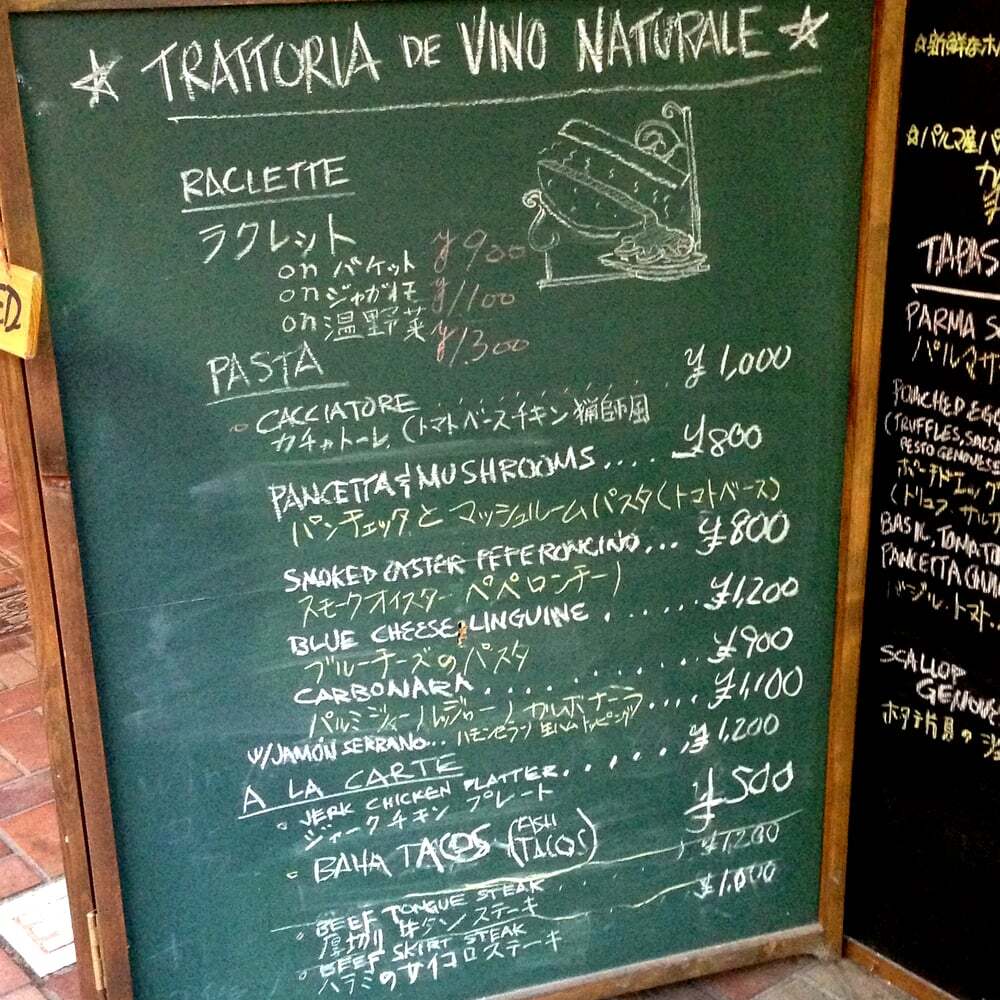 ☆ TRATTORIA DE VINO NATURALE ☆
RACLETTE
ラクレット
on バケット ¥900
on ジャガイモ ¥1100
on 温野菜 ¥1300
PASTA
CACCIATORE ¥1,000
カチャトーレ (トマトベースチキン猟師風
PANCETTA & MUSHROOMS.... ¥800
パンチェッタと マッシュルームパスタ(トマトベース)
SMOKED OYSTER PEPERONCINO... ¥800
スモークオイスター ペペロンチーノ
BLUE CHEESE LINGUINE ...... ¥1,200
ブルーチーズのパスタ
CARBONARA......... ¥900
パルミジャーノレッジャーノ カルボナーラ
W/JAMÓN SERRANO... ハモンセラーノ 生ハムトッピング .... ¥1,100
A LA CARTE
JERK CHICKEN PLATTER...... ¥1,200
ジャークチキン プレート
BAHA TACOS (FISH TACOS) ¥500
BEEF TONGUE STEAK ¥1,200
厚切り 牛タン ステーキ
BEEF SKIRT STEAK ¥1,000
ハラミのサイコロステーキ
ED
☆新鮮な
☆パルマ産パ
TAPAS
PARMA
パルマサ
POACHED EGG
(TRUFFLES, SALSA
PESTO GENOVESE
ポーチドエッグ
(トリュフ サルサ
BASIL, TOMATO
PANCETTA
バジル・トマト
SCALLOP
GENOVE
ホタテ貝の ジェ